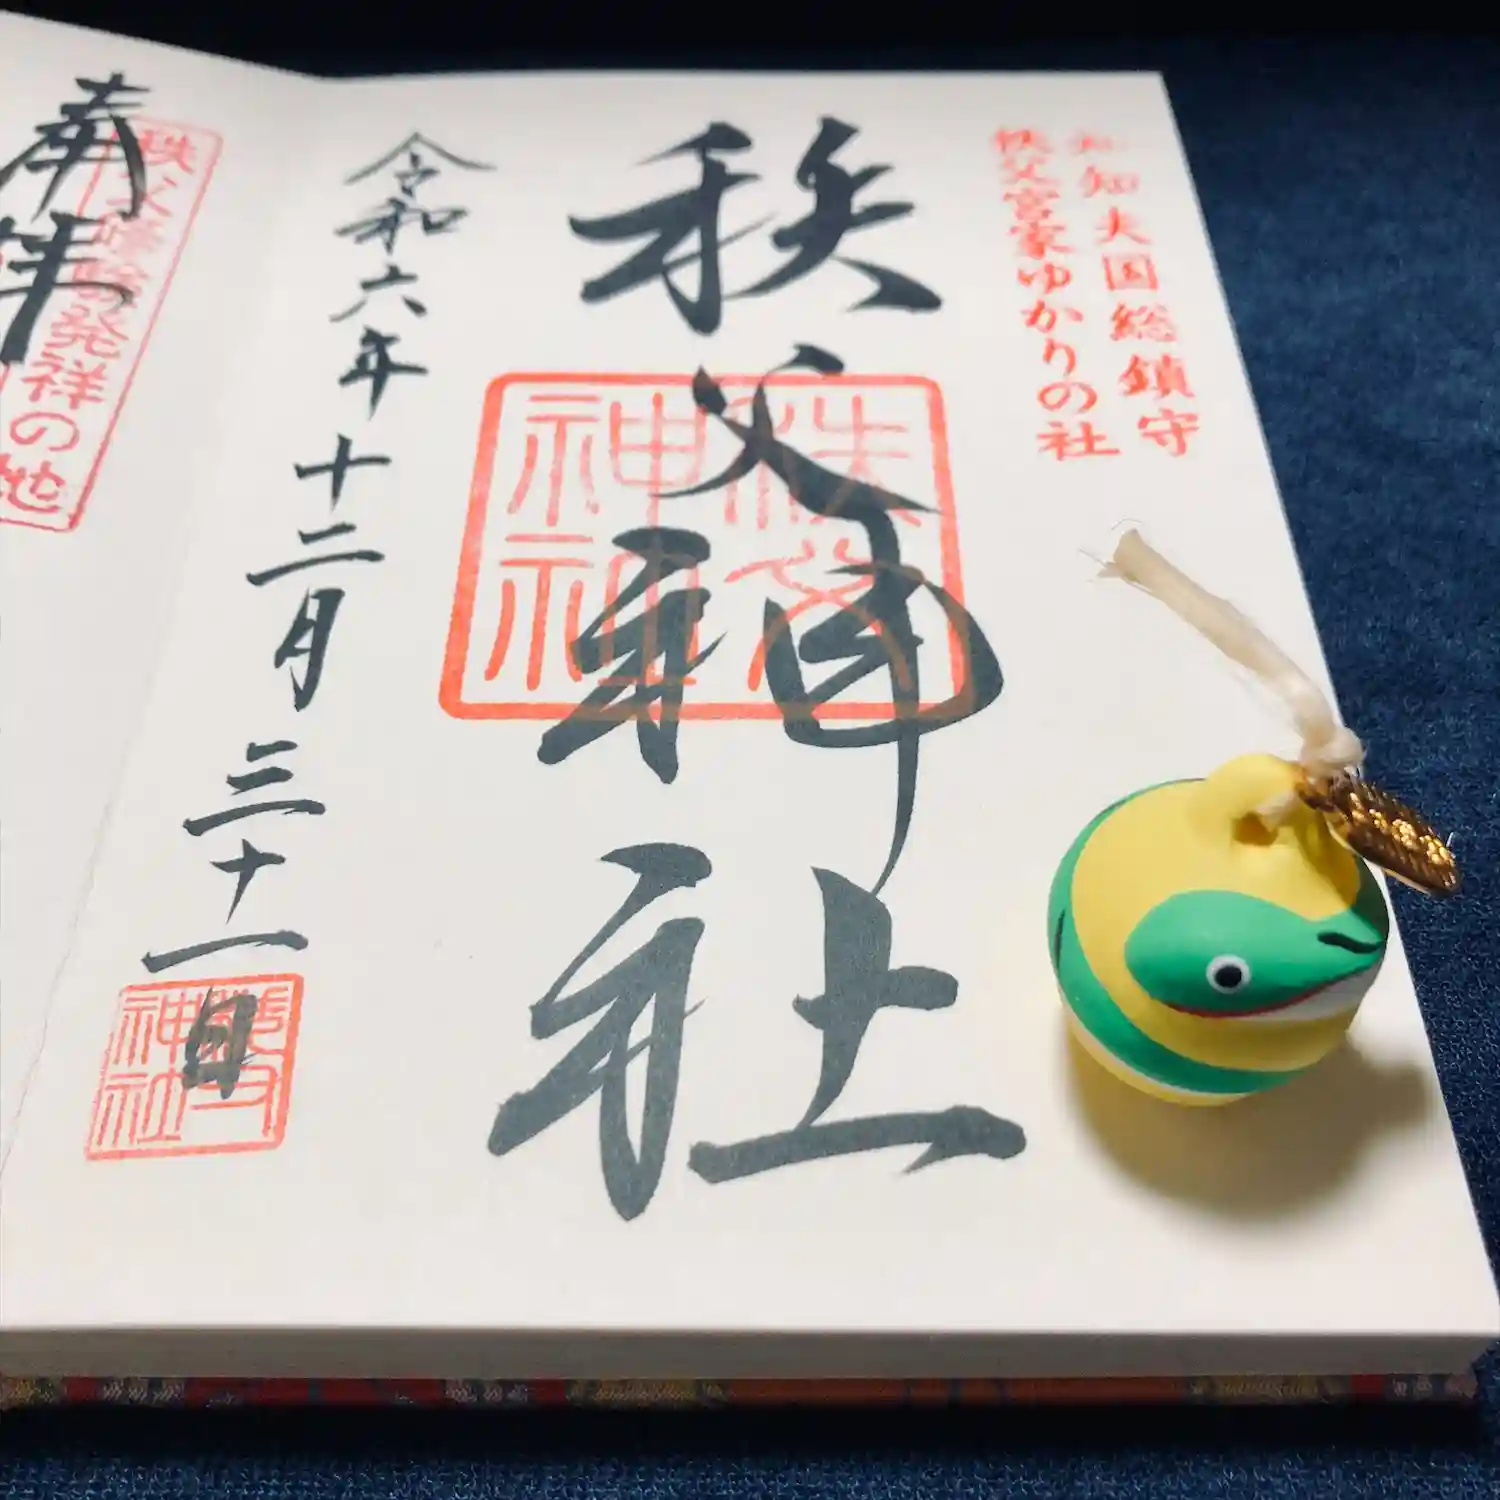 知知夫国総鎮守
秩父宮家ゆかりの社
秩父神社
秩父
神神
令和六年十二月三十一日
神社
奉拝
の発祥の地